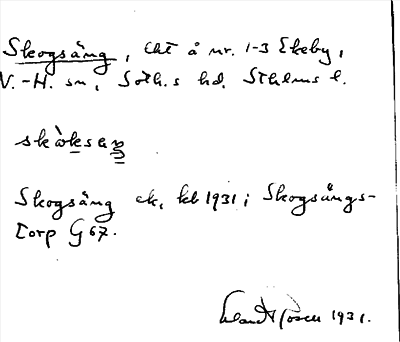 Skogsäng, lht å nr. 1-3 Ekeby,
V.-H. sn, Söth.s hd, Sthlms l.
skògsäŋ
Skogsäng ek, kb 1931; Skogsängs-
torp G 67.
1931.